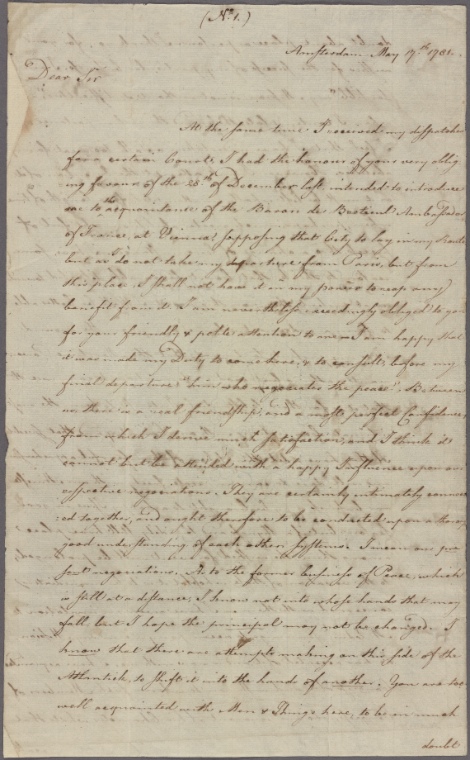 (No. 1.)
Amsterdam May 17th 1781.
Dear Sir
At the same time I received my dispatches
for a certain Court, I had the honour of your very oblig
ing favour of the 28th of December last, intended to introduce
me to the acquaintance of the Baron de Breteuil Ambassador
of France, at Vienna, supposing that City to lay in my Route
but as I do not take my departure from Paris, but from
this place, I shall not have it in my power to reap any
benefit from it. I am nevertheless exceedingly obliged to you
for your friendly & polite attention to me. I am happy that
it was made my Duty to come here, & to consult, before my
final departure "him who negotiates the peace". Between
us there is a real friendship, and a most perfect Confidence,
from which I derive much satisfaction, and I think it
cannot but be attended with a happy Influence upon our
respective negotiations. They are certainly intimately connect
ed together, and ought therefore to be conducted upon a thoro'
good understanding of each others Systems. I mean our pre
sent negotiations. As to the former business of Peace, which
is still at a distance, I know not into whose hands that may
fall, but I hope the principal may not be changed. I
know that there are attempts making on this side of the
Atlantick, to shift it into the hands of another. You are too
well acquainted with the Men & Things here, to be in much
doubt